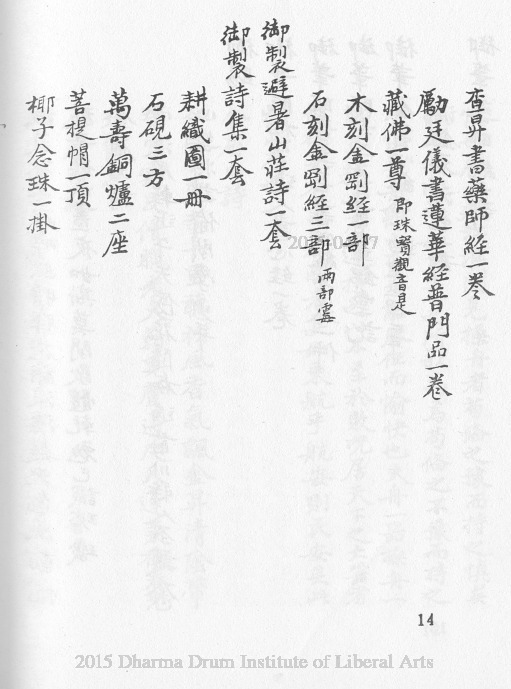 查昇書藥師經一卷
勵廷儀書蓮華經普門品一卷
藏佛一尊 即珠寶觀音是
木刻金剛經一部
石刻金剛經三部 兩部霉
御製避暑山莊詩一套
御製詩集一套
耕織圖一冊
石硯三方
萬壽銅爐二座
菩提帽一頂
椰子念珠一掛
14
2015 Dharma Drum Institute of Liberal Arts